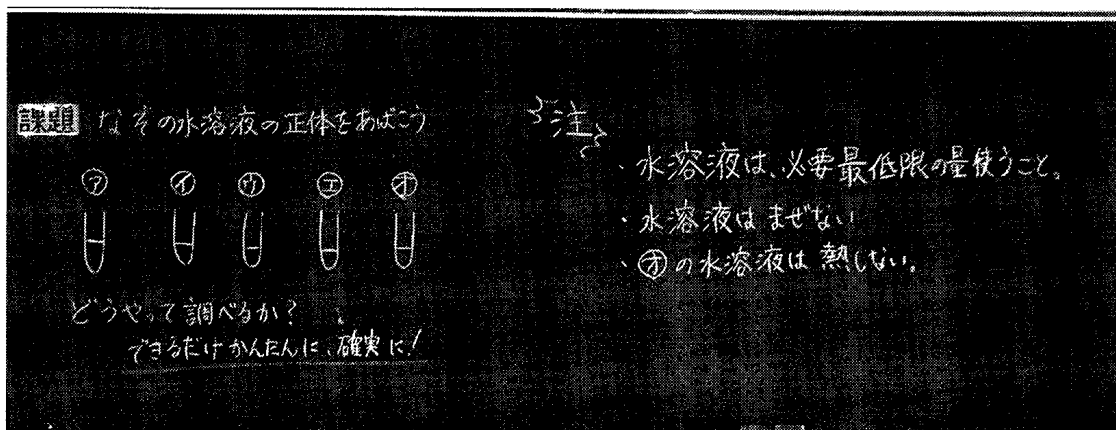 課題 なぞの水溶液の正体をあばこう
ア イ ウ エ オ
どうやって調べるか?
できるだけかんたんに、確実に!
注
・水溶液は、必要最低限の量使うこと。
・水溶液はまぜない
・オの水溶液は熱しない。